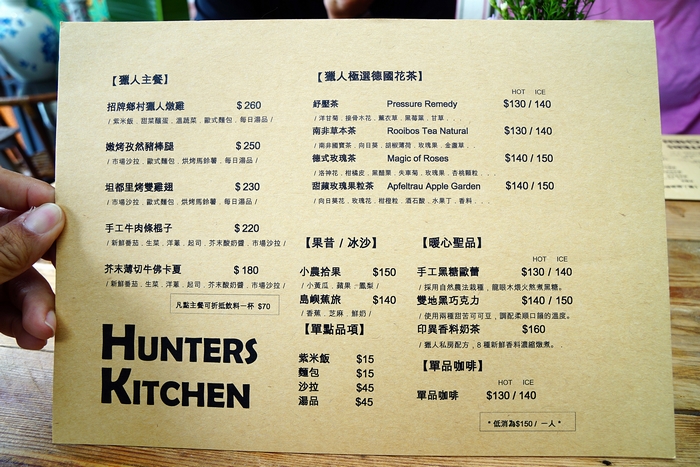 【獵人主餐】
招牌鄉村獵人燉雞 $260
/ 紫米飯．甜菜醃蛋．溫蔬菜．歐式麵包．每日湯品 /
嫩烤孜然豬棒腿 $250
/ 市場沙拉．歐式麵包．烘烤馬鈴薯．每日湯品 /
坦都里烤雙雞翅 $230
/ 市場沙拉．歐式麵包．烘烤馬鈴薯．每日湯品 /
手工牛肉條棍子 $220
/ 新鮮番茄．生菜．洋蔥．起司．芥末酸奶醬．市場沙拉 /
芥末薄切牛佛卡夏 $180
/ 新鮮番茄．生菜．洋蔥．起司．芥末酸奶醬．市場沙拉 /
凡點主餐可折抵飲料一杯 $70
HUNTERS
KITCHEN
【獵人極選德國花茶】
HOT ICE
紓壓茶 Pressure Remedy $130 / 140
/ 洋甘菊．接骨木花．薰衣草．黑莓葉．甘草...
南非草本茶 Rooibos Tea Natural $130 / 140
/ 南非國寶茶．向日葵．胡椒薄荷．玫瑰果．金盞草..
德式玫瑰茶 Magic of Roses $140 / 150
/ 洛神花．柑橘皮．黑醋果．矢車菊．玫瑰果．杏桃顆粒...
甜蘋玫瑰果粒茶 Apfeltrau Apple Garden $140 / 150
/ 向日葵花．玫瑰花．柑橙粒．酒石酸．水果丁．香料...
【果昔 / 冰沙】
小農拾果 $150
/ 小黃瓜．蘋果．鳳梨 /
島嶼蕉旅 $140
/ 香蕉．芝麻．鮮奶 /
【單點品項】
紫米飯 $15
麵包 $15
沙拉 $45
湯品 $45
【暖心聖品】
HOT ICE
手工黑糖歐蕾 $130 / 140
/ 採用自然農法栽種，龍眼木燻火熬煮黑糖。
雙地黑巧克力 $140 / 150
/ 使用兩種甜苦可可豆，調配柔順口韻的溫度。
印異香料奶茶 $160
/ 獵人私房配方，8 種新鮮香料濃縮燉煮。
【單品咖啡】
HOT ICE
單品咖啡 $130 / 140
* 低消為$150 / 一人 *